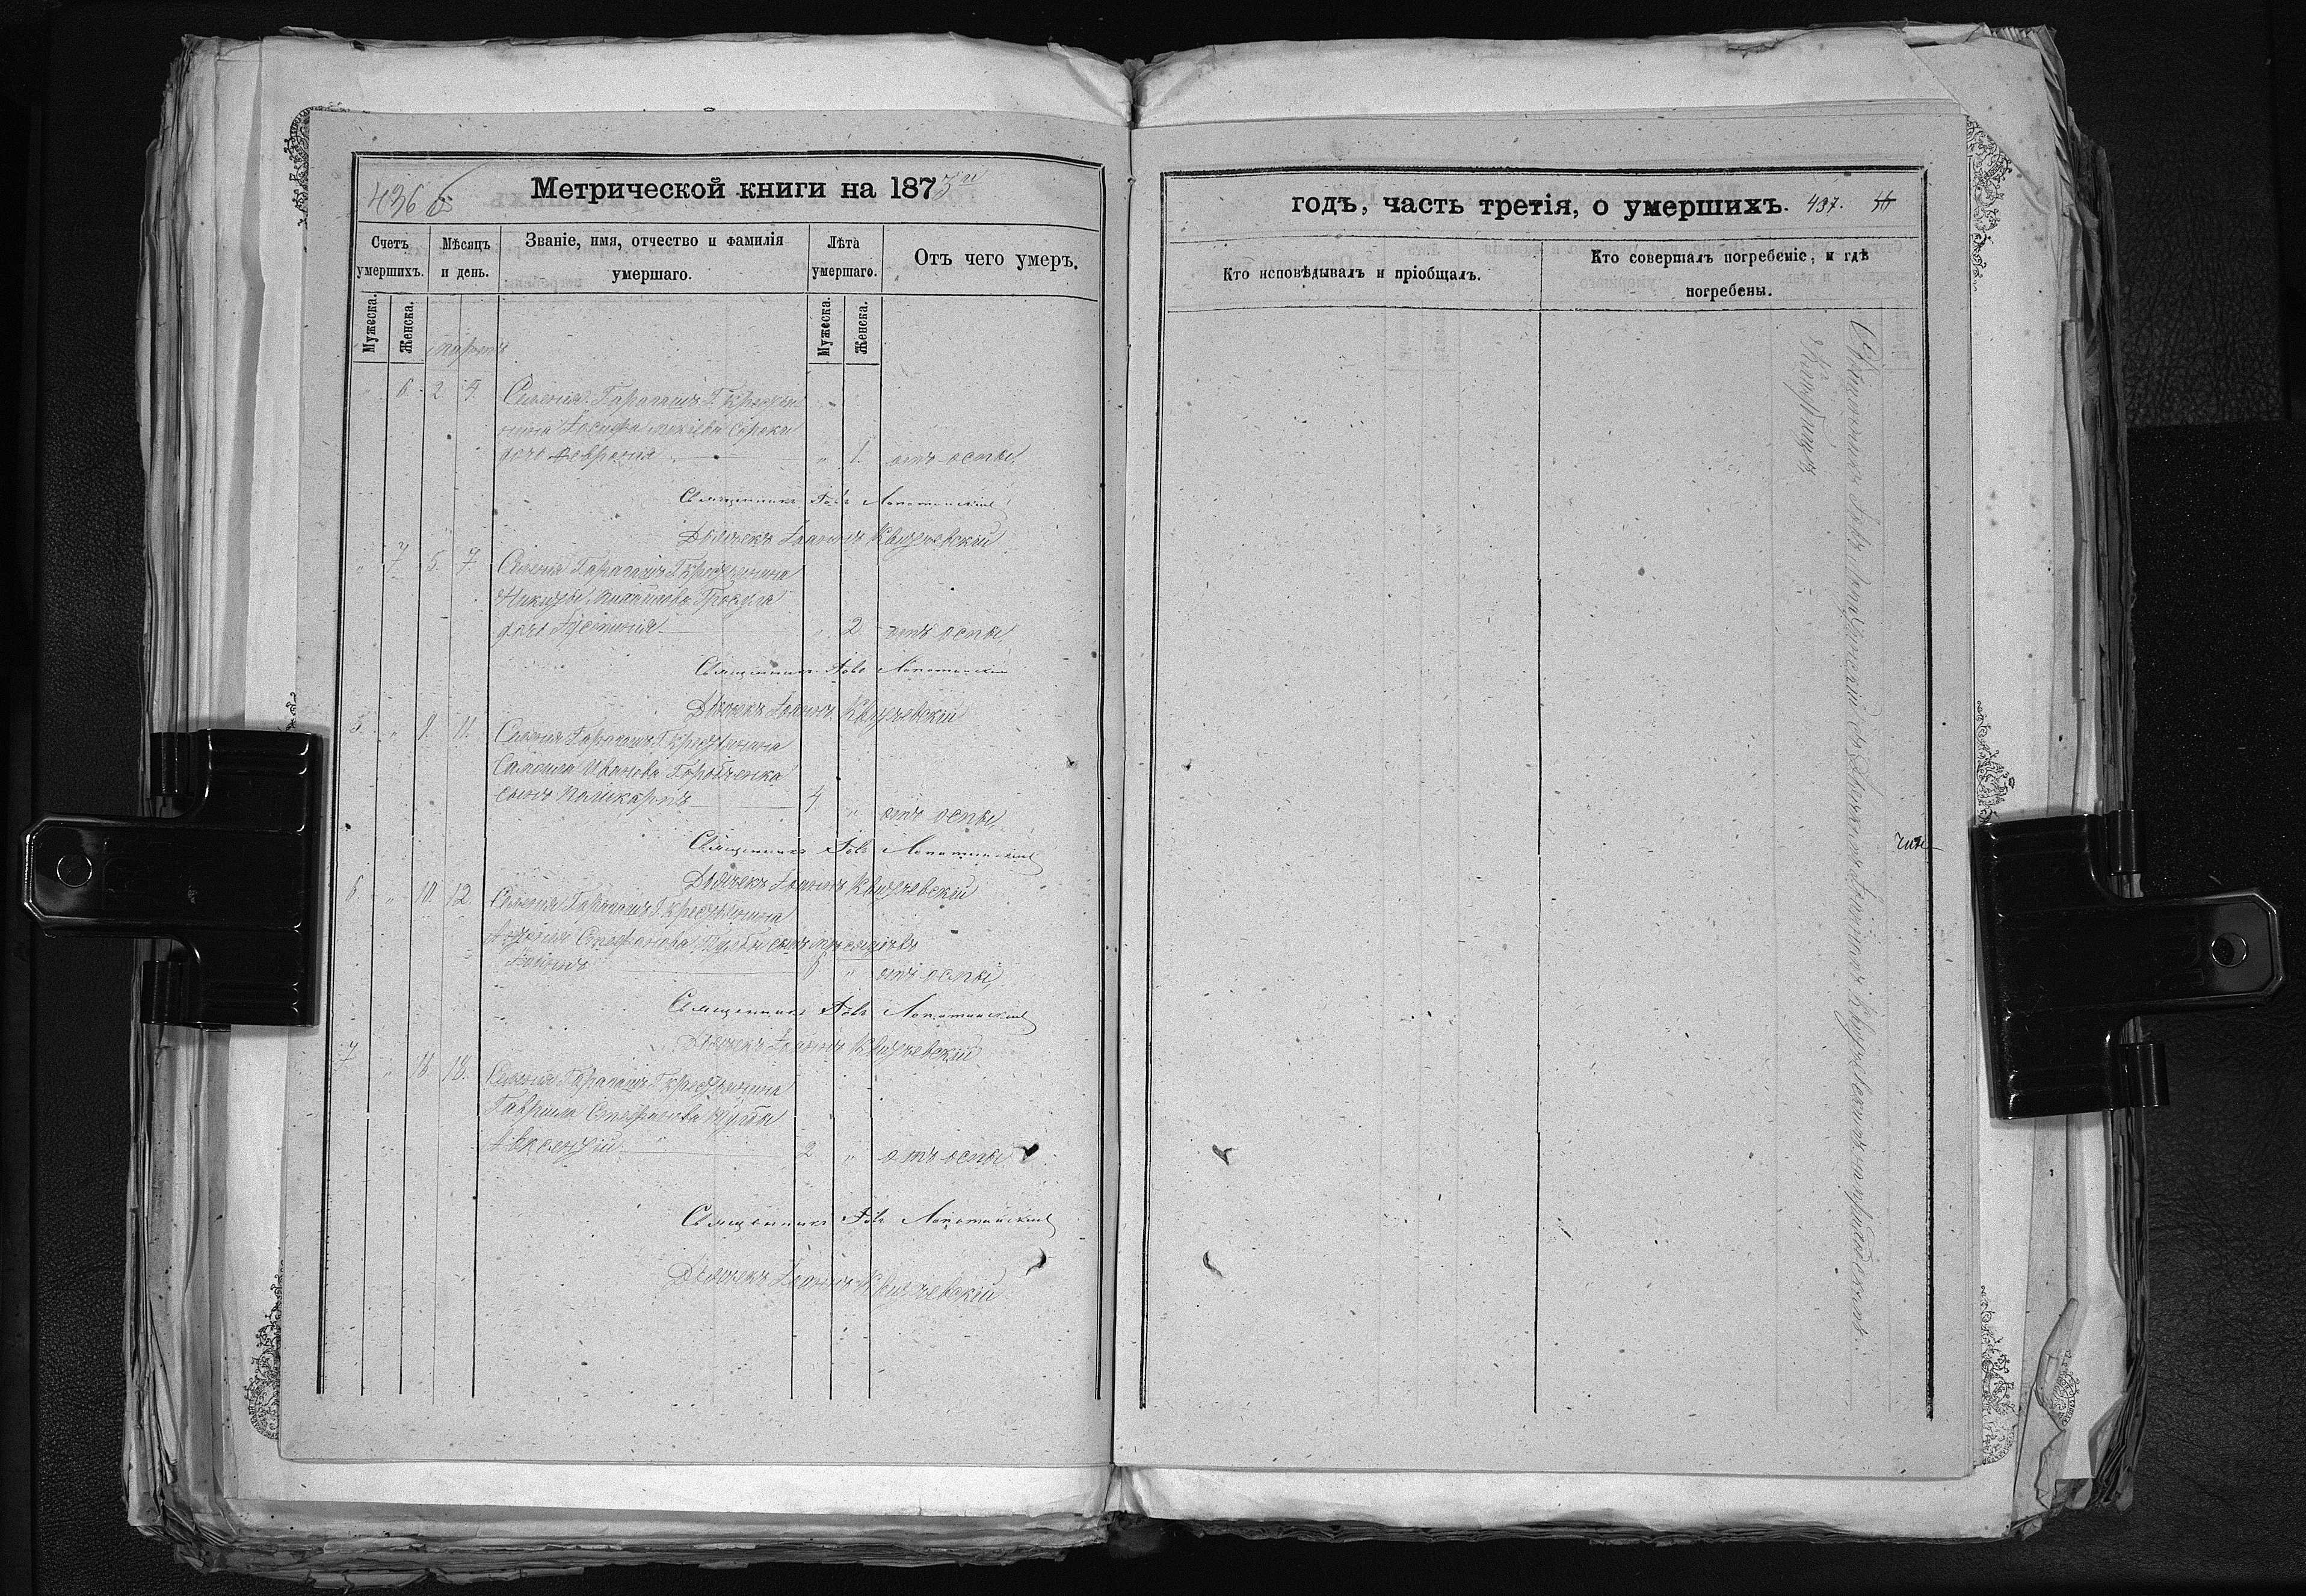 436
Метрической книги на 1875й
Счетъ умершихъ.
Мужеска.
Женска.
Мѣсяцъ и день.
Званіе, имя, отчество и фамилія умершаго.
Лѣта умершаго.
Мужеска.
Женска.
Отъ чего умеръ.
Мартъ
" 6. 2 4. Селенія Гарагашъ Г. крестья
нина Іосифа Сороки
дочь Феврония " 1. отъ оспы,
Священникъ Іовъ Лопатинскій
Дьячекъ Іоаннъ Квитчевскій
" 7 5. 7. Селенія Гарагашъ Г. крестьянина
Никиты Михайлова
дочь Іустинія " 2 отъ оспы,
Священникъ Іовъ Лопатинскій
Дьячекъ Іоаннъ Квитчевскій
5. " 9. 11. Селенія Гарагашъ Г. крестьянина
Самоила Иванова Горобченка
сынъ Поликарпъ 4 " отъ оспы,
Священникъ Іовъ Лопатинскій
Дьячекъ Іоаннъ Квитчевскій
6. " 10. 12. Селенія Гарагашъ Г. крестьянина
Стефанова сынъ мѣсяцевъ
6 " отъ оспы,
Священникъ Іовъ Лопатинскій
Дьячекъ Іоаннъ Квитчевскій
7 " 18. Селенія Гарагашъ Г. крестьянина
Гавріила Стефанова
Авксентій 2 " отъ оспы
Священникъ Іовъ Лопатинскій
Дьячекъ Іоаннъ Квитчевскій
годъ, часть третія, о умершихъ. 437.
Кто исповѣдывалъ и пріобщалъ.
Кто совершалъ погребеніе, и гдѣ погребены.
Священникъ Іовъ Лопатинскій съ Дьячкомъ Іоанномъ Квитчевскимъ на приходскомъ
Кладбищѣ